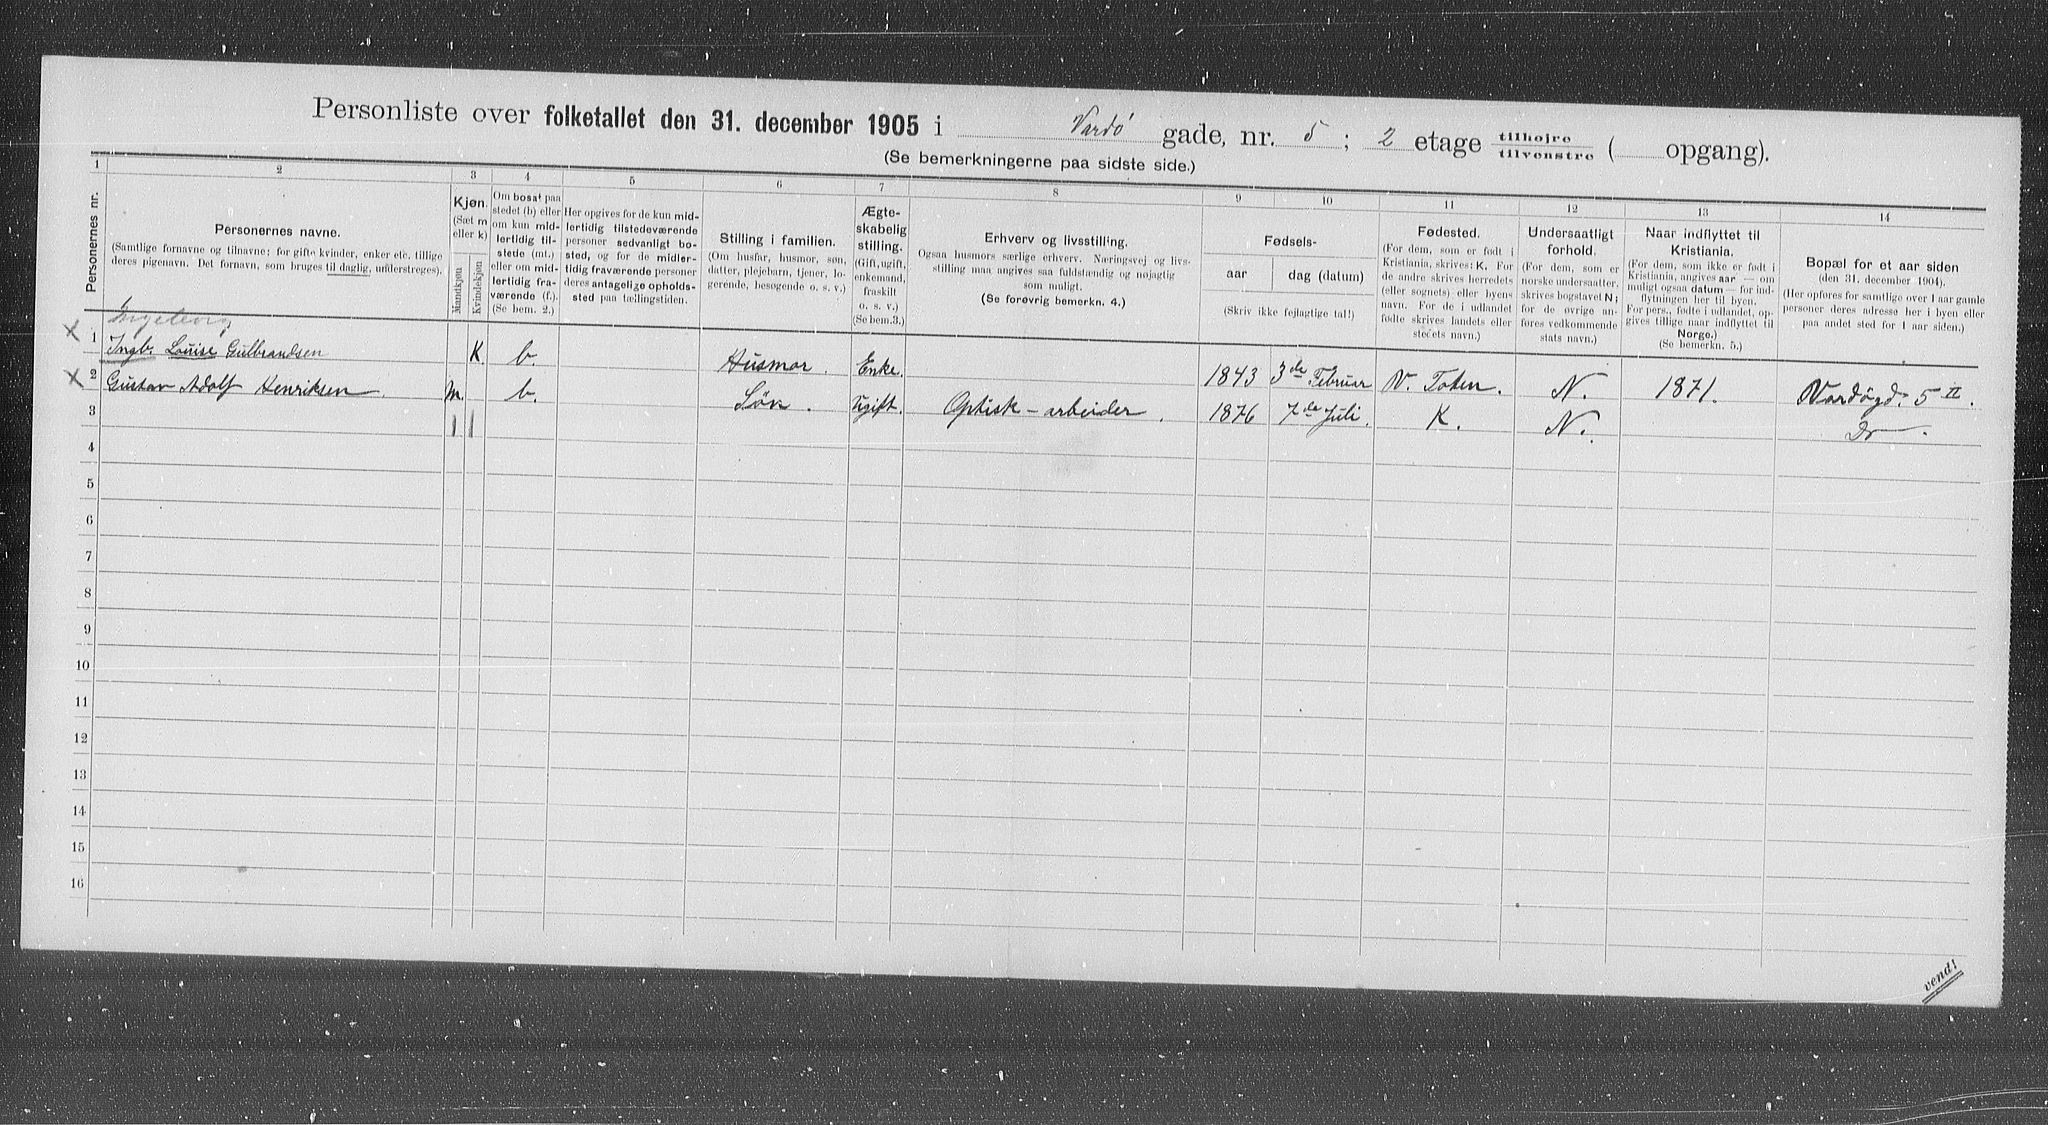 Personliste over folketallet den 31. december 1905 i Vardø gade, nr. 5; 2 etage tilhøjre tilvenstre ( opgang).
(Se bemerkningerne paa sidste side.)
1 2 3 4 5 6 7 8 9 10 11 12 13 14
Personernes nr.
Personernes navne.
(Samtlige fornavne og tilnavne; for gifte kvinder, enker etc. tillige
deres pigenavn. Det fornavn, som bruges til daglig, understreges).
Kjøn.
(Sæt m
eller k)
Mandkjøn
Kvindekjøn
Om bosat paa
stedet (b) eller
om kun mid-
lertidig til-
stede (mt.)
eller om mid-
lertidig fra-
værende (f.).
(Se bem. 2.)
Her opgives for de kun mid-
lertidig tilstedeværende
personer sedvanligt bo-
sted, og for de midler-
tidig fraværende personer
deres antagelige opholds-
sted paa tællingstiden.
Stilling i familien.
(Om husfar, husmor, søn,
datter, plejebarn, tjener, lo-
gerende, besøgende o. s. v.)
Ægte-
skabelig
stilling.
(Gift, ugift,
enkemand,
fraskilt
o. s. v.)
(Se bem.3.)
Erhverv og livsstilling.
Ogsaa husmors særlige erhverv. Næringsvej og livs-
stilling maa angives saa fuldstændig og nøjagtig
som muligt.
(Se forøvrig bemerkn. 4.)
Fødsels-
aar dag (datum)
(Skriv ikke fejlagtige tal!)
Fødested.
(For dem, som er født i
Kristiania, skrives: K. For
de andre skrives herredets
(eller sognets) eller byens
navn. For de i udlandet
fødte skrives landets eller
stedets navn.)
Undersaatligt
forhold.
(For dem, som er
norske undersaatter.
skrives bogstavet N;
for de øvrige an-
føres vedkommende
stats navn.)
Naar indflyttet til
Kristiania.
(For dem, som ikke er født i
Kristiania, angives aar — om
muligt ogsaa datum — for ind-
flytningen her til byen.
For pers., fødte i udlandet, op-
gives tillige naar indflyttet til
Norge.)
(Se bemerkn. 5.)
Bopæl for et aar siden
(den 31. december 1904).
(Her opføres for samtlige over 1 aar gamle
personer deres adresse her i byen eller
paa andet sted for 1 aar siden.)
Ingeborg
X 1 Ingb. Louise Gulbrandsen K b. Husmor. Enke. 1843 3de Februar V. Toten. N. 1871. Vardøgd. 5 II.
X 2 Gustav Adolf Henriksen. m. b. Søn. Ugift. Optisk-arbeider. 1876 7de Juli. K. N. Do.
3
4
5
6
7
8
9
10
11
12
13
14
15
16
vend!